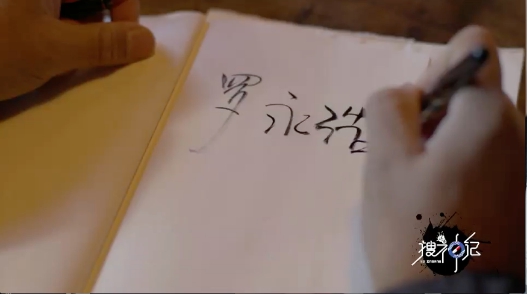 罗永浩
搜神记